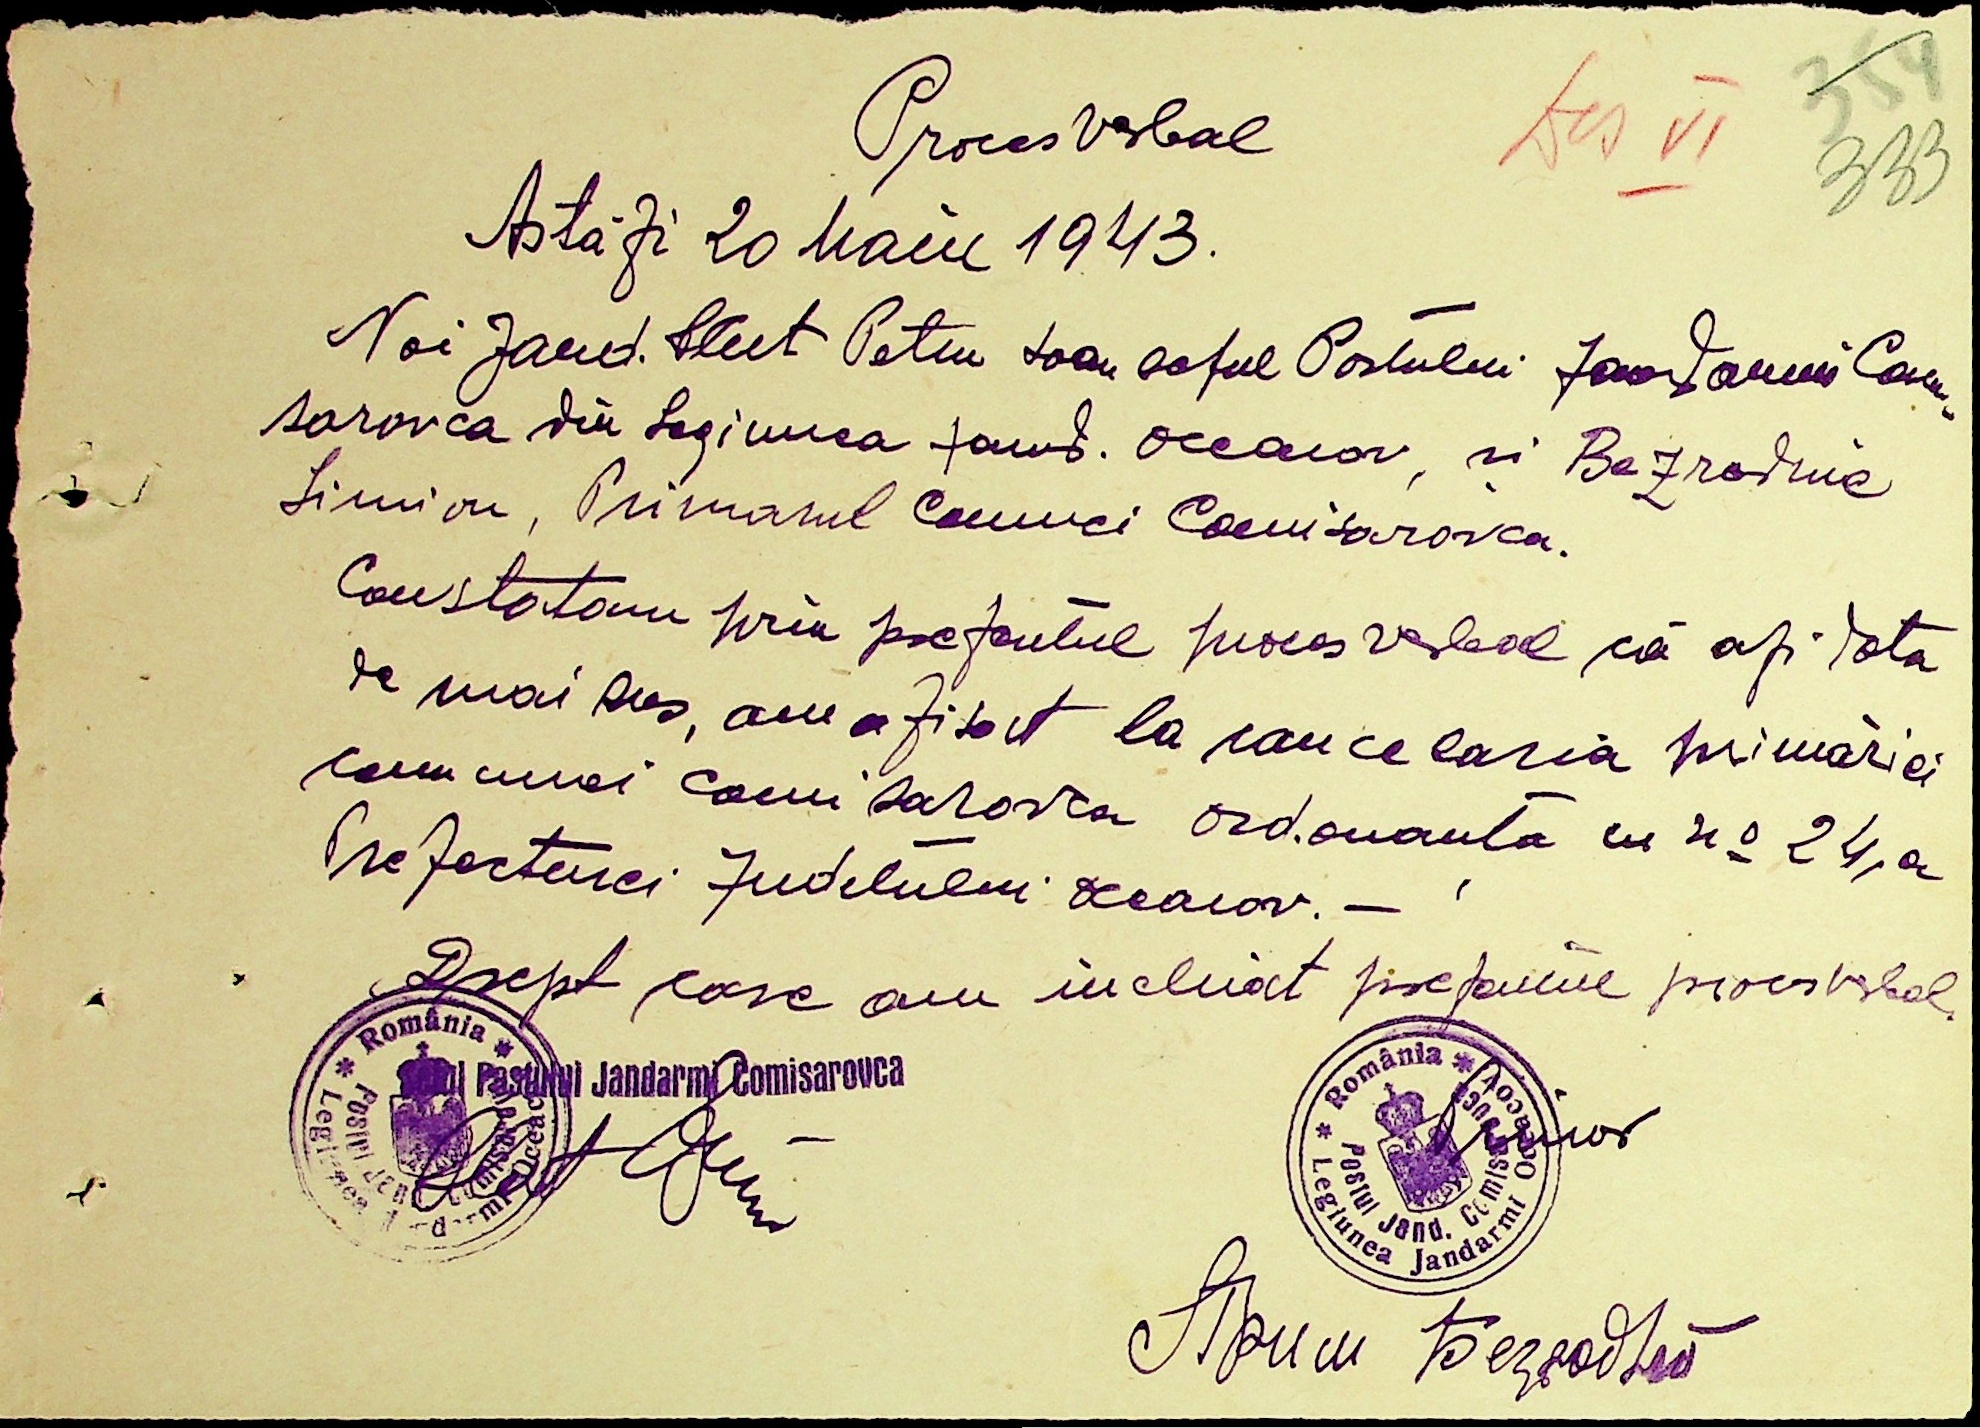 Des VI
354
333
Proces verbal
Astăzi 20 Maiu 1943.
Noi Jand. Slut Petru Ioan seful Postului Jandarmi Com-
sarovca din Legiunea Jand. Oceacov, si Bezrodnic
Simion, Primarul Comunei Comisarovca.
Constatam prin prezentul proces verbal că azi data
de mai sus, am afisat la cancelaria primăriei
comunei Comisarovca ordonanta cu No 24, a
Prefecturei Judetului Oceacov. —
Drept care am incheiat prezentul proces verbal.
Postului Jandarmi Comisarovca
România
Legiunea Jandarmi Oceacov
Postul Jand. Comisarovca
Primar
România
Legiunea Jandarmi Oceacov
Postul Jand. Comisarovca